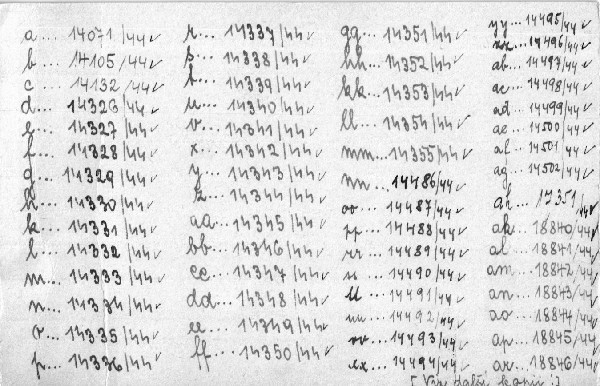 a... 14071/44✓
b... 14105/44✓
c... 14132/44✓
d... 14326/44✓
e... 14327/44✓
f... 14328/44✓
g... 14329/44✓
h... 14330/44✓
k... 14331/44✓
l... 14332/44✓
m... 14333/44✓
n... 14334/44✓
o... 14335/44✓
p... 14336/44✓
r... 14337/44✓
s... 14338/44✓
t... 14339/44✓
u... 14340/44✓
v... 14341/44✓
x... 14342/44✓
y... 14343/44✓
z... 14344/44✓
aa... 14345/44✓
bb... 14346/44✓
cc... 14347/44✓
dd... 14348/44✓
ee... 14349/44✓
ff... 14350/44✓
gg... 14351/44✓
hh... 14352/44✓
kk... 14353/44✓
ll... 14354/44✓
mm... 14355/44✓
nn... 14486/44✓
oo... 14487/44✓
pp... 14488/44✓
rr... 14489/44✓
ss... 14490/44✓
tt... 14491/44✓
uu... 14492/44✓
vv... 14493/44✓
xx... 14494/44✓
yy... 14495/44✓
zz... 14496/44✓
ab... 14497/44✓
ac... 14498/44✓
ad... 14499/44✓
ae... 14500/44✓
af... 14501/44✓
ag... 14502/44✓
ah... 17351/44✓
ak... 18840/44✓
al... 18841/44✓
am... 18842/44✓
an... 18843/44✓
ao... 18844/44✓
ap... 18845/44✓
ar... 18846/44✓
další